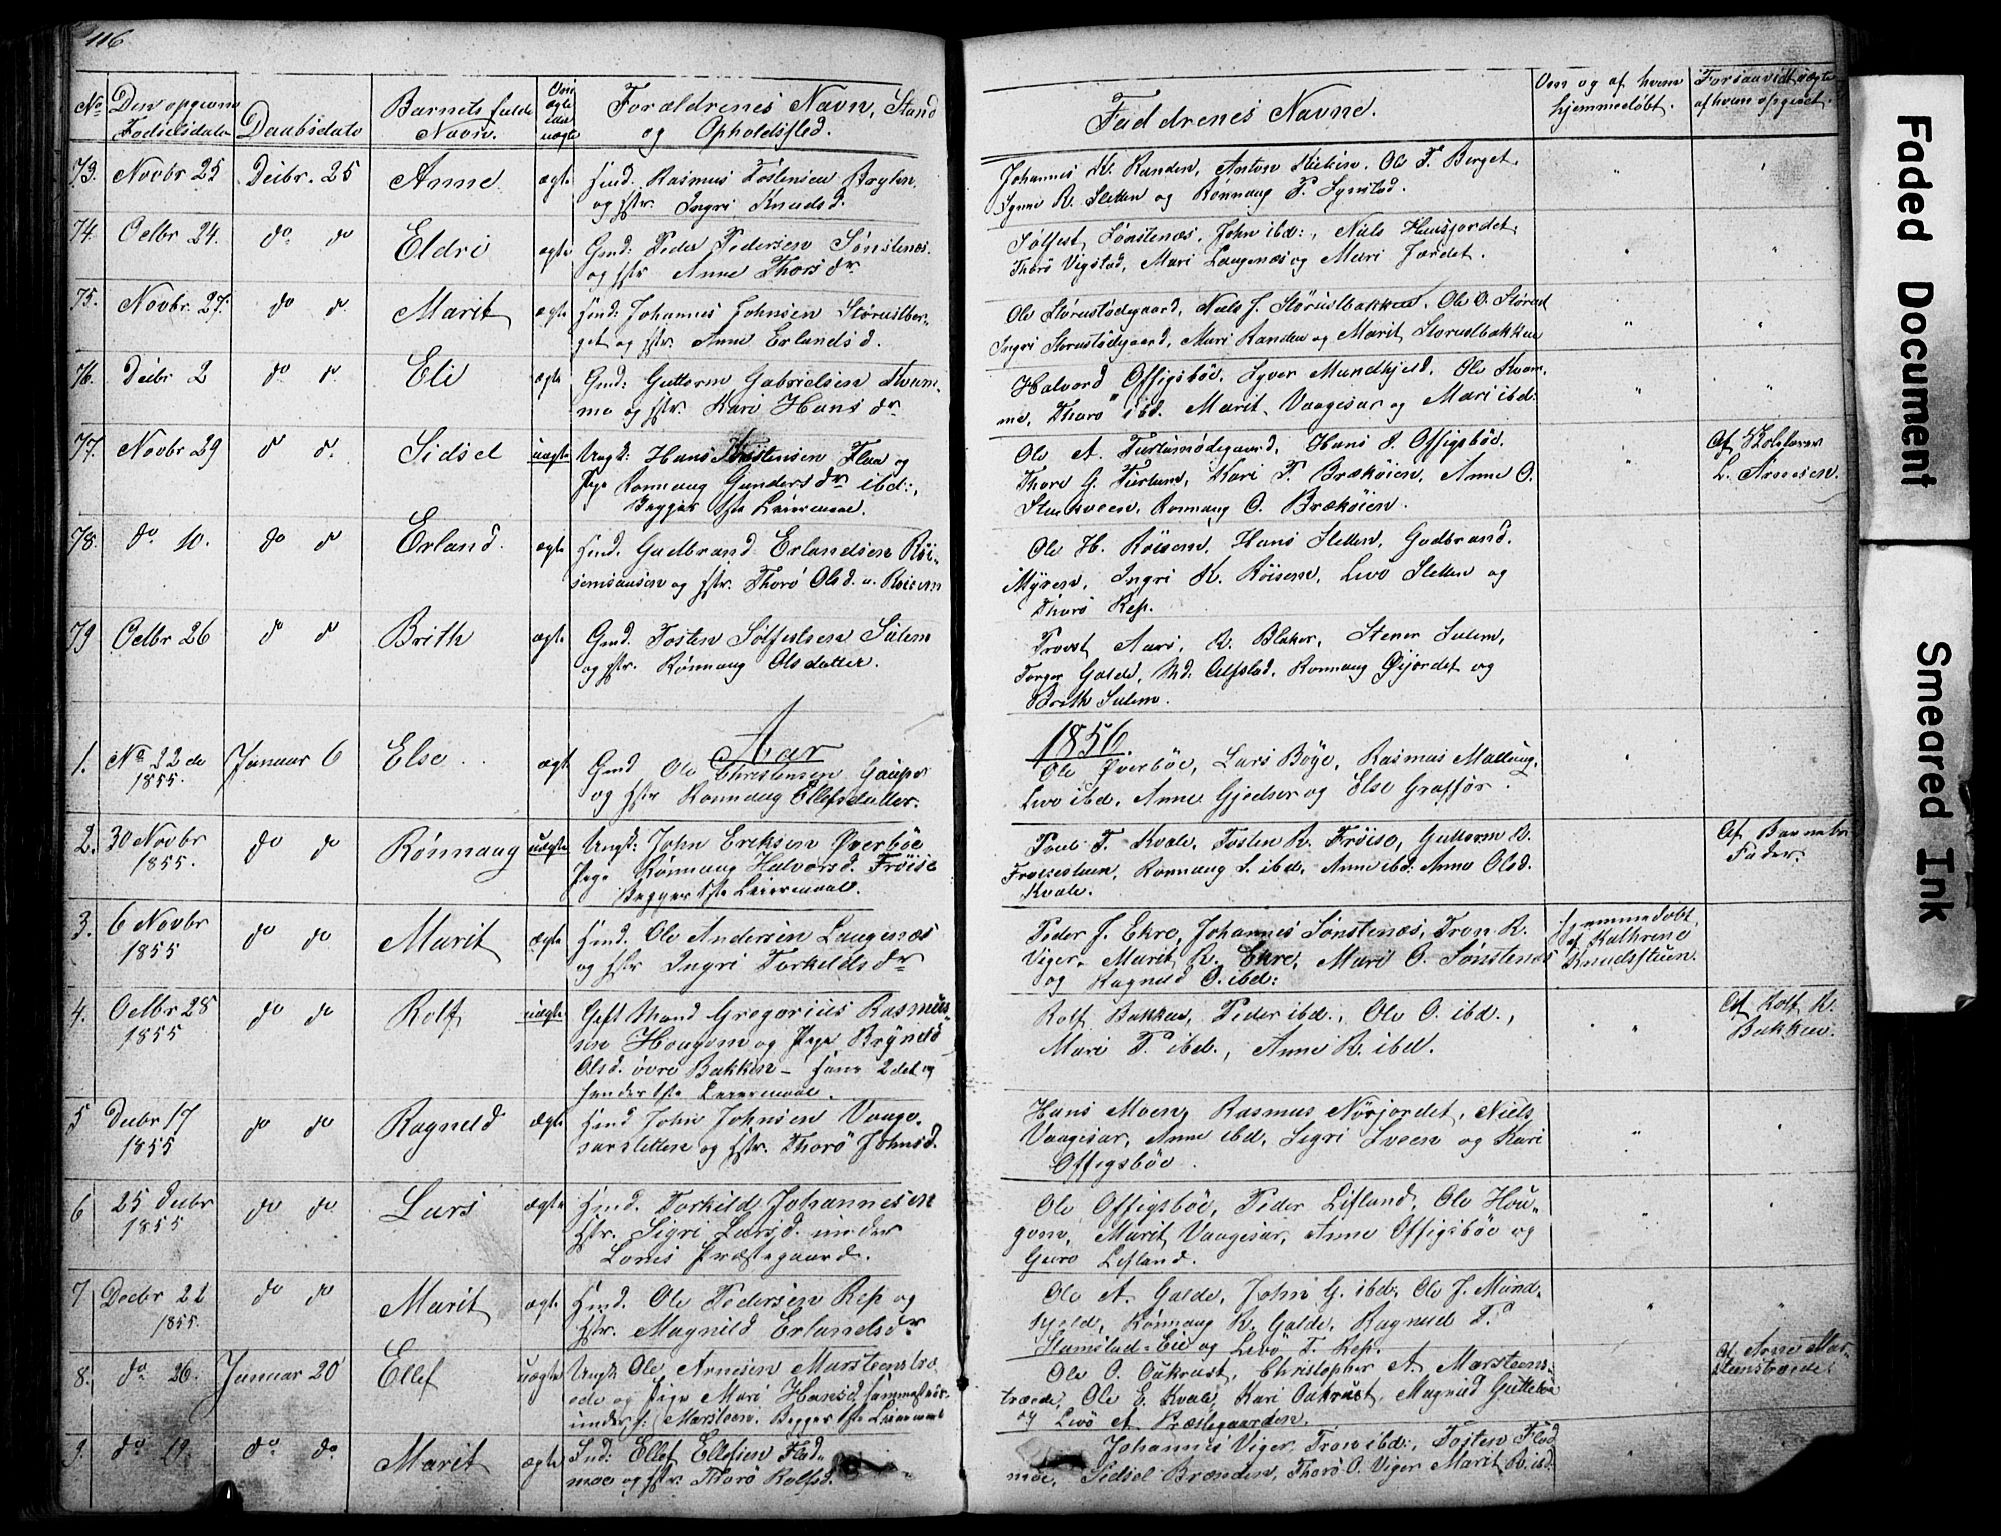 116
No
Den opgivne
Fødselsdato
Daabsdato
Barnets fulde
Navn.
Om
ægte
eller
uægte
Forældrenes Navn, Stand
og Opholdssted.
Faddrenes Navne.
Om og af hvem
hjemmedøbt.
Forsaavidt uægte
af hvem opgivet.
73. Novbr 25 Decbr. 25 Anne ægte Hmd. Rasmus Tostensen
og Hstr. Ingri Knudsd.
Johannes Randen, Anton Ole T. Berget.
Synne R. Sletten og Rønnaug P.
74. Octbr 24. do do Eldri ægte Gmd: Peder Pedersen Sønstenæs.
og Hstr Anne Thorsdr
Sølfest Sønstenæs, John ibd:, Niels Huusjordet,
Thorø Vigstad, Mari Laugenæs og Mari Jordet.
75. Novbr 27. do do Marit ægte Hmd: Johannes Johnsen Størustber-
get og Hstr. Anne Erlandsd.
Ole Størustødegaard, Niels J. Størustbakken, Ole O. Størust
Ingri Størustødegaard, Mari Randen og Marit Størustbakken
76. Decbr 2 do do Eli ægte Gmd: Guttorm Gabrielsen Kvam-
me og Hstr. Kari Hansdr
Halvord Offigsbøe, Syver Mundhjeld, Ole Kvam-
me, Thorø ibd. Marit Vaagesar og Mari ibd:
77. Novbr 29 do do Sidsel uægte Ungk: Hans Tostensen Flaa og
Pige Rønnaug Gundersdr ibd:,
Begges 1ste Leiermaal.
Ole A. Furlumødegaard, Hans J. Offigsbøe.
Thore G. Furlum, Kari T. Brækøien, Anne O.
Rønnaug O. Brækøien.
Af Skolelærer
L. Arnesen.
78. do 10. do do Erland. ægte Hmd. Gudbrand Erlandsen Røi-
og Hstr. Thorø Olsd. u. Røisem
Ole H. Røisem, Hans Sletten, Gudbrand
Myren, Ingri K. Røisem, Livø Sletten og
Thorø Rep.
79 Octbr 26 do do Brith ægte Gmd. Tosten Sølfestsen Sulem
og Hstr. Rønnaug Olsdatter.
Provst Aars, R. Blaker, Stener Sulem,
Torger Galde, Md. Alfstad, Rønnaug Øijordet og
Brith Sulem.
Aar 1856.
1. No 22de
1855. Januar 6 Else ægte Gmd Ole Christensen Gaupar
og Hstr Rønnaug Ellefsdatter.
Ole Øverbøe, Lars Bøye, Rasmus Mattung,
Livø ibd, Anne Gjedser og Else Graffør.
2. 30 Novbr
1855. do do Rønnaug uægte Ungk: John Eriksen Øverbøe
Pige Rønnaug Halvorsd. Frøise
Begges 1ste Leiermaal.
Poul T. Kvale, Tosten R. Frøise, Guttorm R.
Frøisestuen, Rønnaug S. ibd, Anne ibd: Anne Olsd.
Kvale.
Af Barnets
Fader.
3. 6 Novbr
1855 do do Marit ægte Hmd. Ole Andersen Laugenæs
og Hstr Ingri Torkildsdr
Peder J. Ekre, Johannes Sønstenæs, Tron R.
Viger, Marit R. Ekre, Mari O. Sønstenæs
og Ragnild O. ibd:
Hjemmedøbt
af Kathrene
Knudsstuen.
4. Octbr 28
1855 do do Rolf uægte Gift Mand Gregorius Rasmus-
sen Hougom og Pige Brynild
Olsd. øvre Bakken - hans 2det og
hendes 1ste Leiermaal.
Rolf Bakken, Peder ibd., Ole O. ibd.,
Mari P. ibd., Anne R. ibd.
Af Rolf R.
Bakken.
5 Decbr 17
1855 do do Ragnild ægte Hmd John Johnsen Vaage-
sarsletten og Hstr. Thorø Johnsd.
Hans Moen, Rasmus Nørjordet, Niels
Vaagesar, Anne ibd, Sigri Sveen og Kari
Offigsbøe.
6 25 Decbr
1855 do do Lars ægte Hmd. Torkild Johannesen
Hstr. Sigri Larsd. under
Loms Præstegaard.
Ole Offigsbøe, Peder Lifland, Ole Hou-
gom, Marit Vaagesar, Anne Offigsbøe og
Guro Lifland.
7 Decbr 22
1855. do do Marit ægte Hmd. Ole Pedersen Rep og
Hstr. Magnild Erlandsdr
Ole A. Galde, John G. ibd. Ole J. Mund-
hjeld, Rønnaug R. Galde, Ragnild P.
Eie og Livø T. Rep.
8. do 26. Januar 20 Ellef uægte Ungk Ole Arnesen Marsteenstræ-
ede og Pige Mari Hansd. sammesteds
under Marsteen. Begges 1ste Leiermaal
Ole O. Oukrust, Christopher A. Marsteens-
træede, Ole E. Kvale, Kari Oukrust, Magnild
og Livø A. Præstegaarden.
Af Arne Mar-
steenstræede.
9. do 19. do do Marit ægte Ind: Ellef Ellefsen Flod-
moe og Hstr. Thorø Rolfsd.
Johannes Viger, Tron ibd:, Tosten Flod
moe, Sidsel Brænden, Thorø O. Viger Marit R. ibd:
Faded Document
Smeared Ink